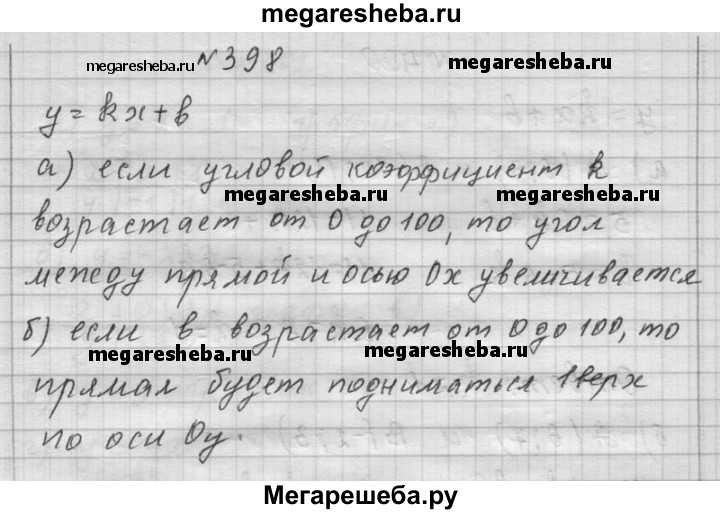 megaresheba.ru
№398
megaresheba.ru
megaresheba.ru
y = kx + b
а) если угловой коэффициент k
megaresheba.ru
megaresheba.ru
возрастает от 0 до 100, то угол
между прямой и осью Ох увеличивается
б) если в возрастает от 0 до 100, то
megaresheba.ru
megaresheba.ru
прямая будет подниматься вверх
по оси Оу.
Мегарешеба.ру